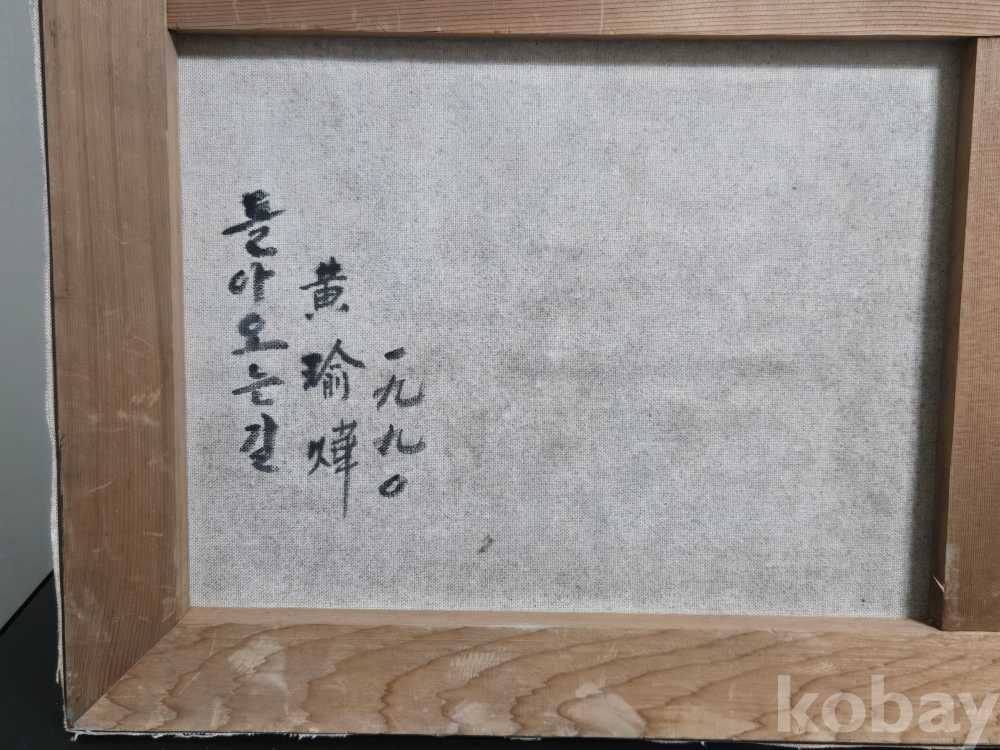 돌아오는길
黄瑜燁
一九九〇
kobay